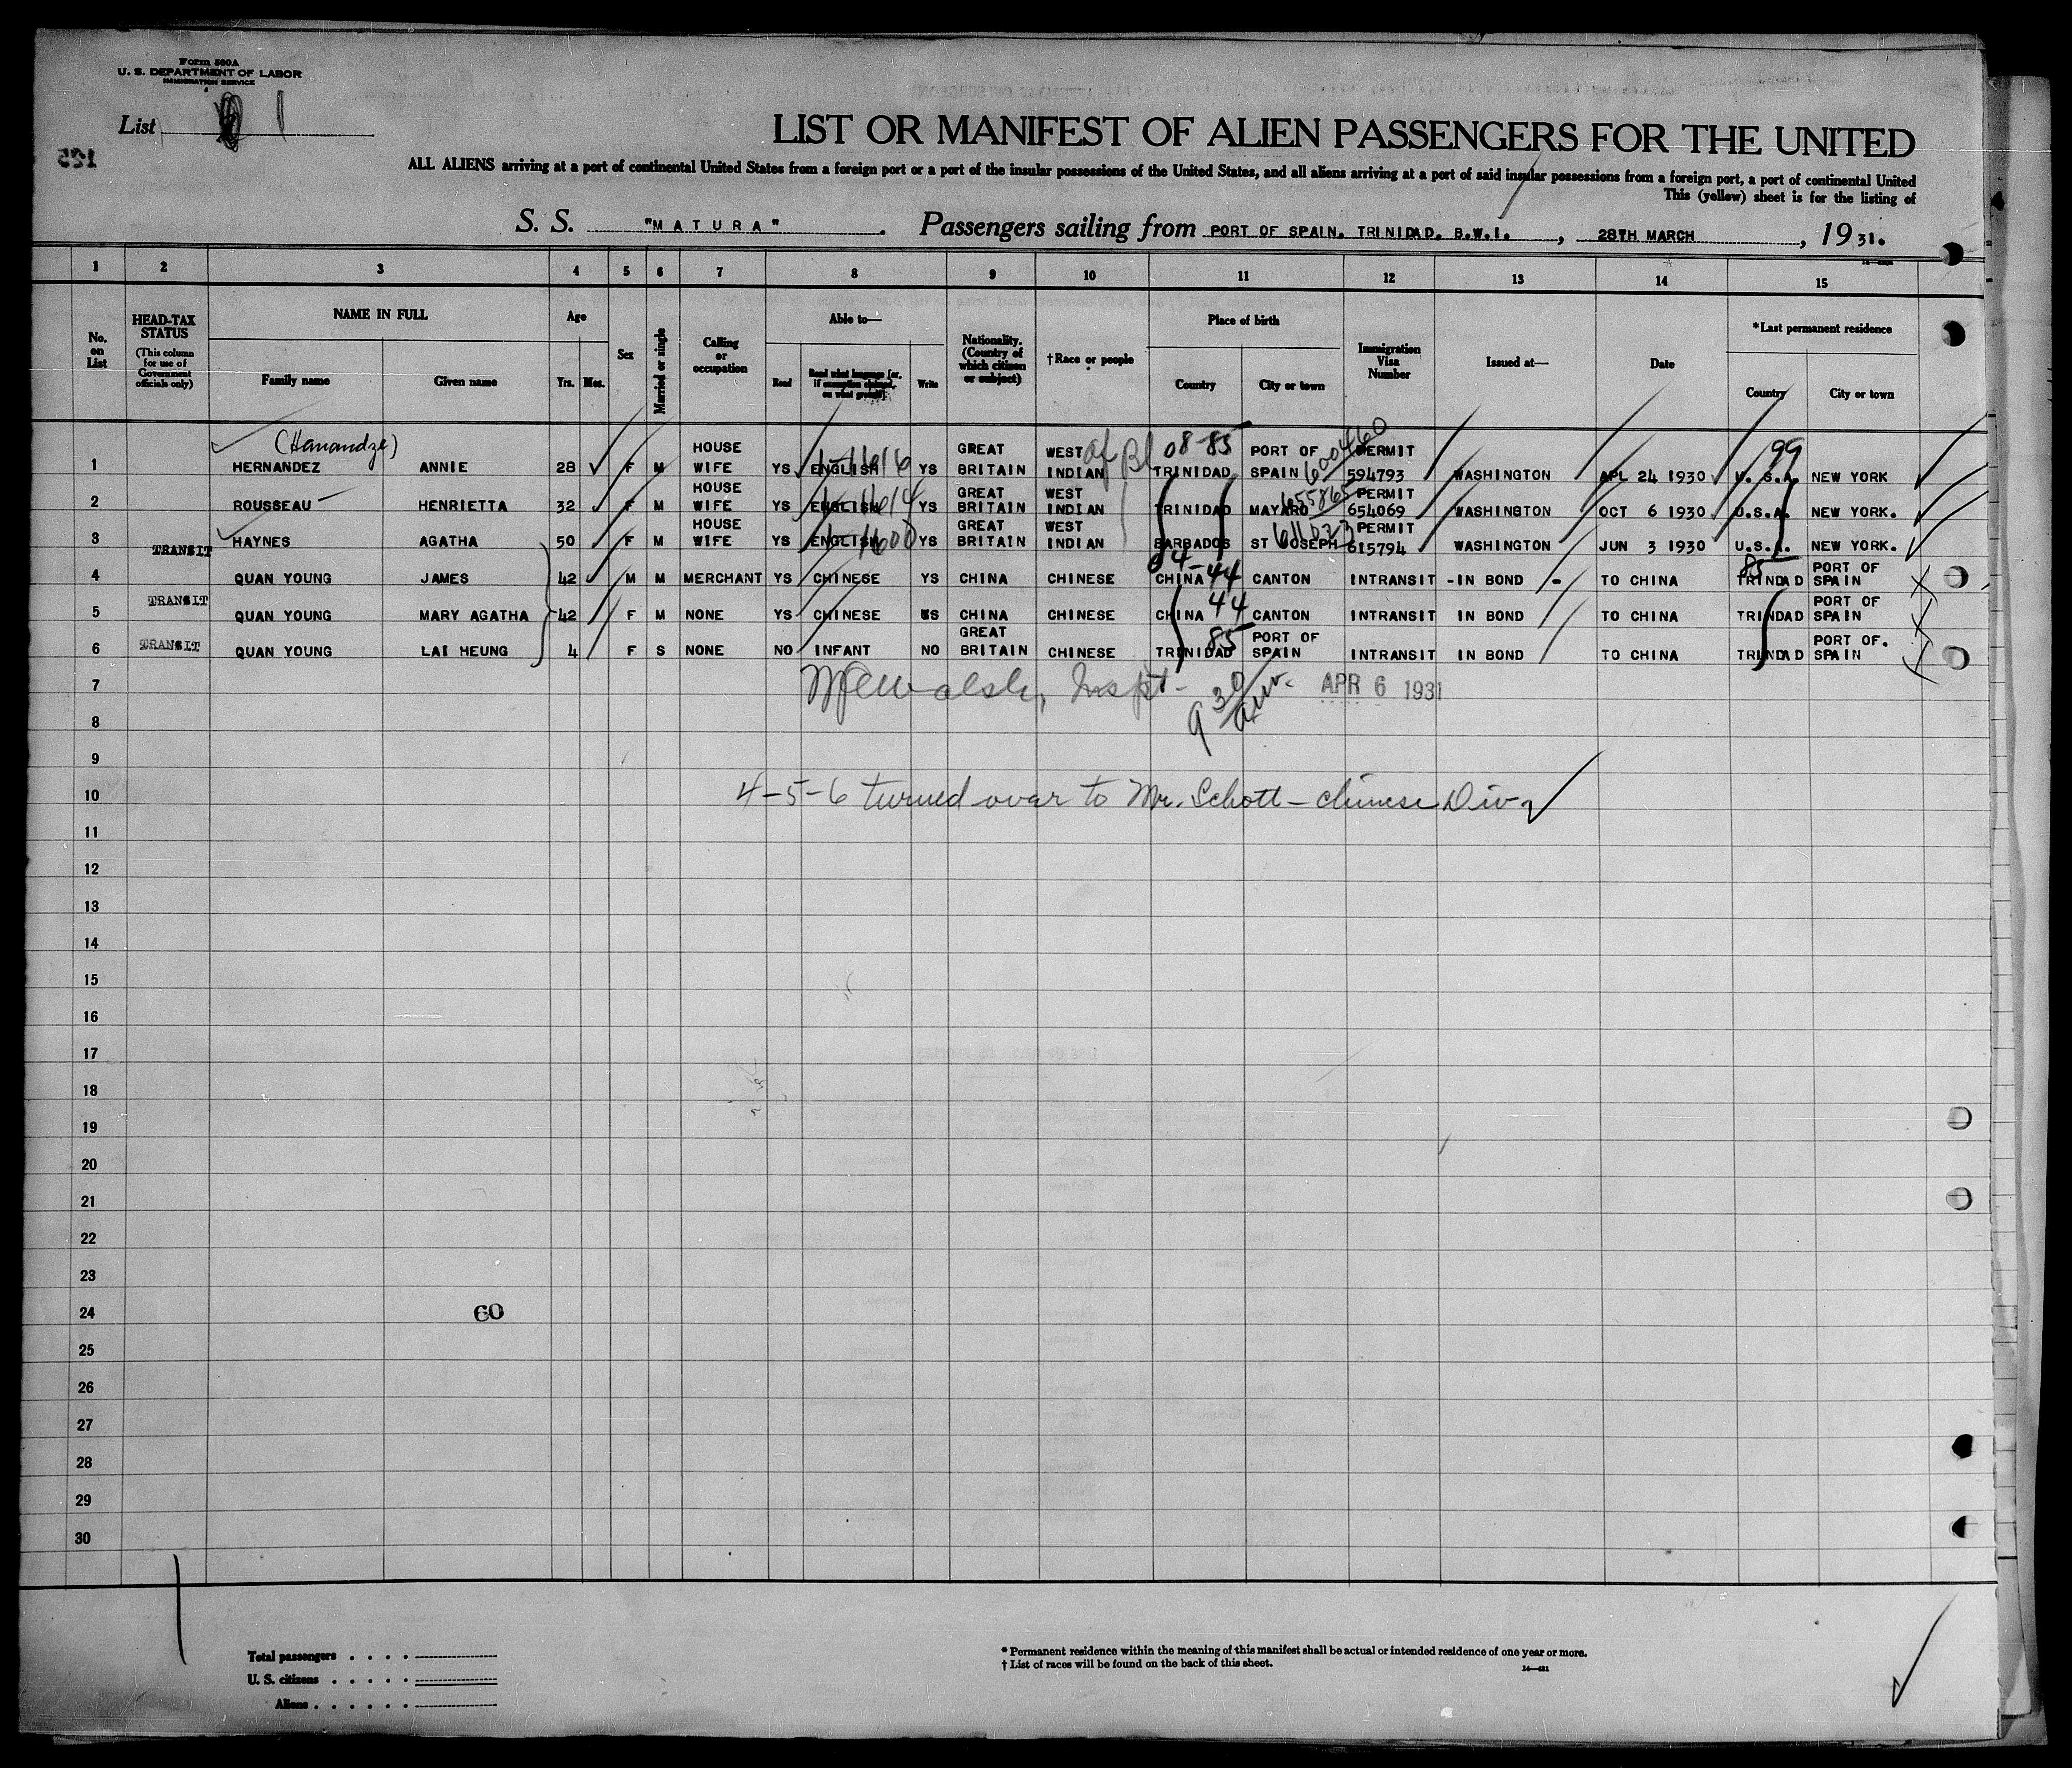 Form 500A
U. S. DEPARTMENT OF LABOR
IMMIGRATION SERVICE
List 1
125
LIST OR MANIFEST OF ALIEN PASSENGERS FOR THE UNITED
ALL ALIENS arriving at a port of continental United States from a foreign port or a port of the insular possessions of the United States, and all aliens arriving at a port of said insular possessions from a foreign port, a port of continental United
This (yellow) sheet is for the listing of
S. S. "MATURA". Passengers sailing from PORT OF SPAIN. TRINIDAD. B.W.I., 28TH MARCH, 19 31.
1 2 3 4 5 6 7 8 9 10 11 12 13 14 15
No. on List
HEAD-TAX STATUS (This column for use of Government officials only)
NAME IN FULL
Family name Given name
Age
Yrs. Mos.
Sex
Married or single
Calling or occupation
Able to—
Read Read what language [or, if exemption claimed, on what ground] Write
Nationality. (Country of which citizen or subject)
†Race or people
Place of birth
Country City or town
Immigration Visa Number
Issued at—
Date
*Last permanent residence
Country City or town
(Hanandze)
1 HERNANDEZ ANNIE 28 F M HOUSE WIFE YS ENGLISH YS GREAT BRITAIN WEST INDIAN Af Bl 08-85 TRINIDAD PORT OF SPAIN 600460 PERMIT 594793 WASHINGTON APL 24 1930 99 U. S.A. NEW YORK
2 ROUSSEAU HENRIETTA 32 F M HOUSE WIFE YS ENGLISH YS GREAT BRITAIN WEST INDIAN TRINIDAD MAYARO 655865 PERMIT 654069 WASHINGTON OCT 6 1930 U.S.A. NEW YORK.
3 HAYNES AGATHA 50 F M HOUSE WIFE YS ENGLISH YS GREAT BRITAIN WEST INDIAN BARBADOS ST JOSEPH 611023 PERMIT 615794 WASHINGTON JUN 3 1930 U.S.A. NEW YORK.
TRANSIT
4 QUAN YOUNG JAMES 42 M M MERCHANT YS CHINESE YS CHINA CHINESE 04-44 CHINA CANTON INTRANSIT - IN BOND - TO CHINA 85 TRINDAD PORT OF SPAIN
TRANSIT
5 QUAN YOUNG MARY AGATHA 42 F M NONE YS CHINESE YS CHINA CHINESE CHINA 44 CANTON INTRANSIT IN BOND TO CHINA TRINDAD PORT OF SPAIN
TRANSIT
6 QUAN YOUNG LAI HEUNG 4 F S NONE NO INFANT NO GREAT BRITAIN CHINESE 85 TRINIDAD PORT OF SPAIN INTRANSIT IN BOND TO CHINA TRINDAD PORT OF. SPAIN
7 Walsh, Inspt- 9 30 am. APR 6 1931
8
9
10 4-5-6 turned over to Mr. Schott - chinese Div
11
12
13
14
15
16
17
18
19
20
21
22
23
24 60
25
26
27
28
29
30
Total passengers . . . .
U. S. citizens . . . . .
Aliens . . . . . .
* Permanent residence within the meaning of this manifest shall be actual or intended residence of one year or more.
† List of races will be found on the back of this sheet.